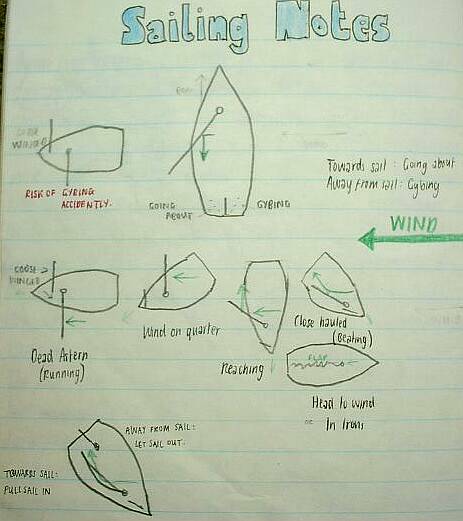 Sailing Notes
GOOSE
WINGED
RISK OF GYBING
ACCIDENTLY.
GOING
ABOUT
GYBING
Towards sail : Going about
Away from sail : Gybing
WIND
GOOSE
WINGED
Dead Astern
(Running)
Wind on quarter
Reaching
Close hauled
(Beating)
FLAP
Head to wind
or In Irons
AWAY FROM SAIL:
LET SAIL OUT.
TOWARDS SAIL:
PULL SAIL IN